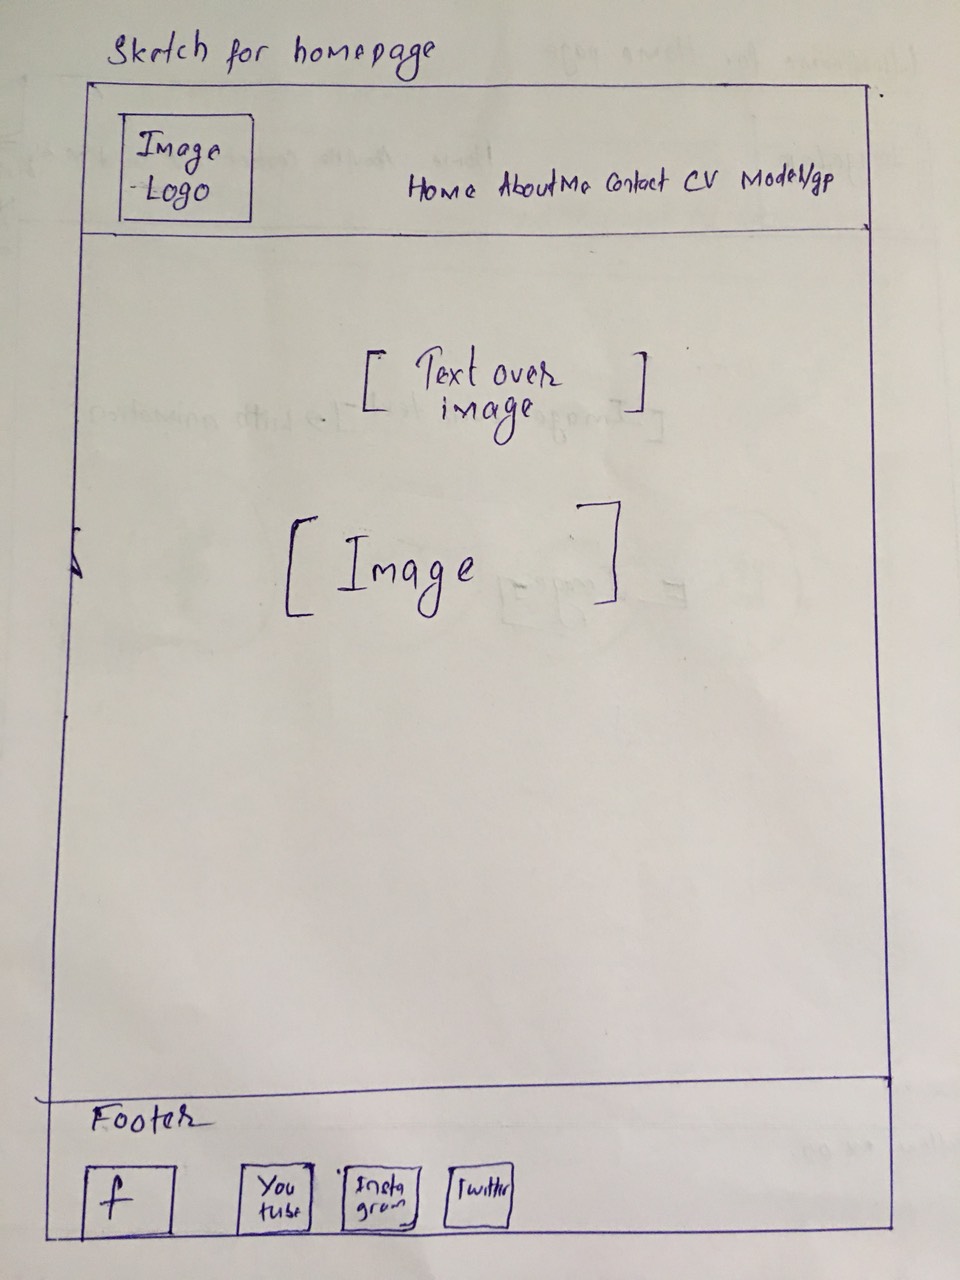 Sketch for homepage
Image
-Logo
Home AboutMe Contact CV
[ Text over ]
image
[ Image ]
Footer
f
You
tube
Insta
gram
Twitter